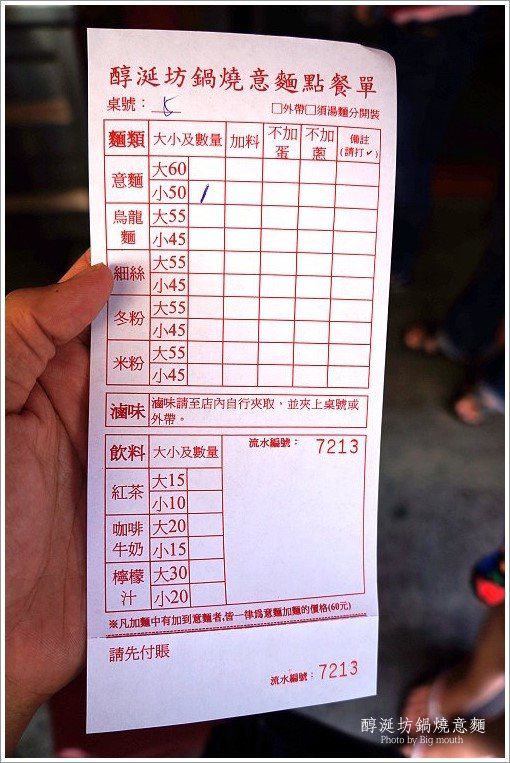 醇涎坊鍋燒意麵點餐單
桌號： 5 □外帶□須湯麵分開裝
麵類 大小及數量 加料 不加蛋 不加蔥 備註(請打✓)
意麵 大60
小50 /
烏龍麵 大55
小45
細絲 大55
小45
冬粉 大55
小45
米粉 大55
小45
滷味 滷味請至店內自行夾取，並夾上桌號或
外帶。
飲料 大小及數量 流水編號： 7213
紅茶 大15
小10
咖啡牛奶 大20
小15
檸檬汁 大30
小20
※凡加麵中有加到意麵者,皆一律為意麵加麵的價格(60元)
請先付賬
流水編號： 7213
醇涎坊鍋燒意麵
Photo by Big mouth